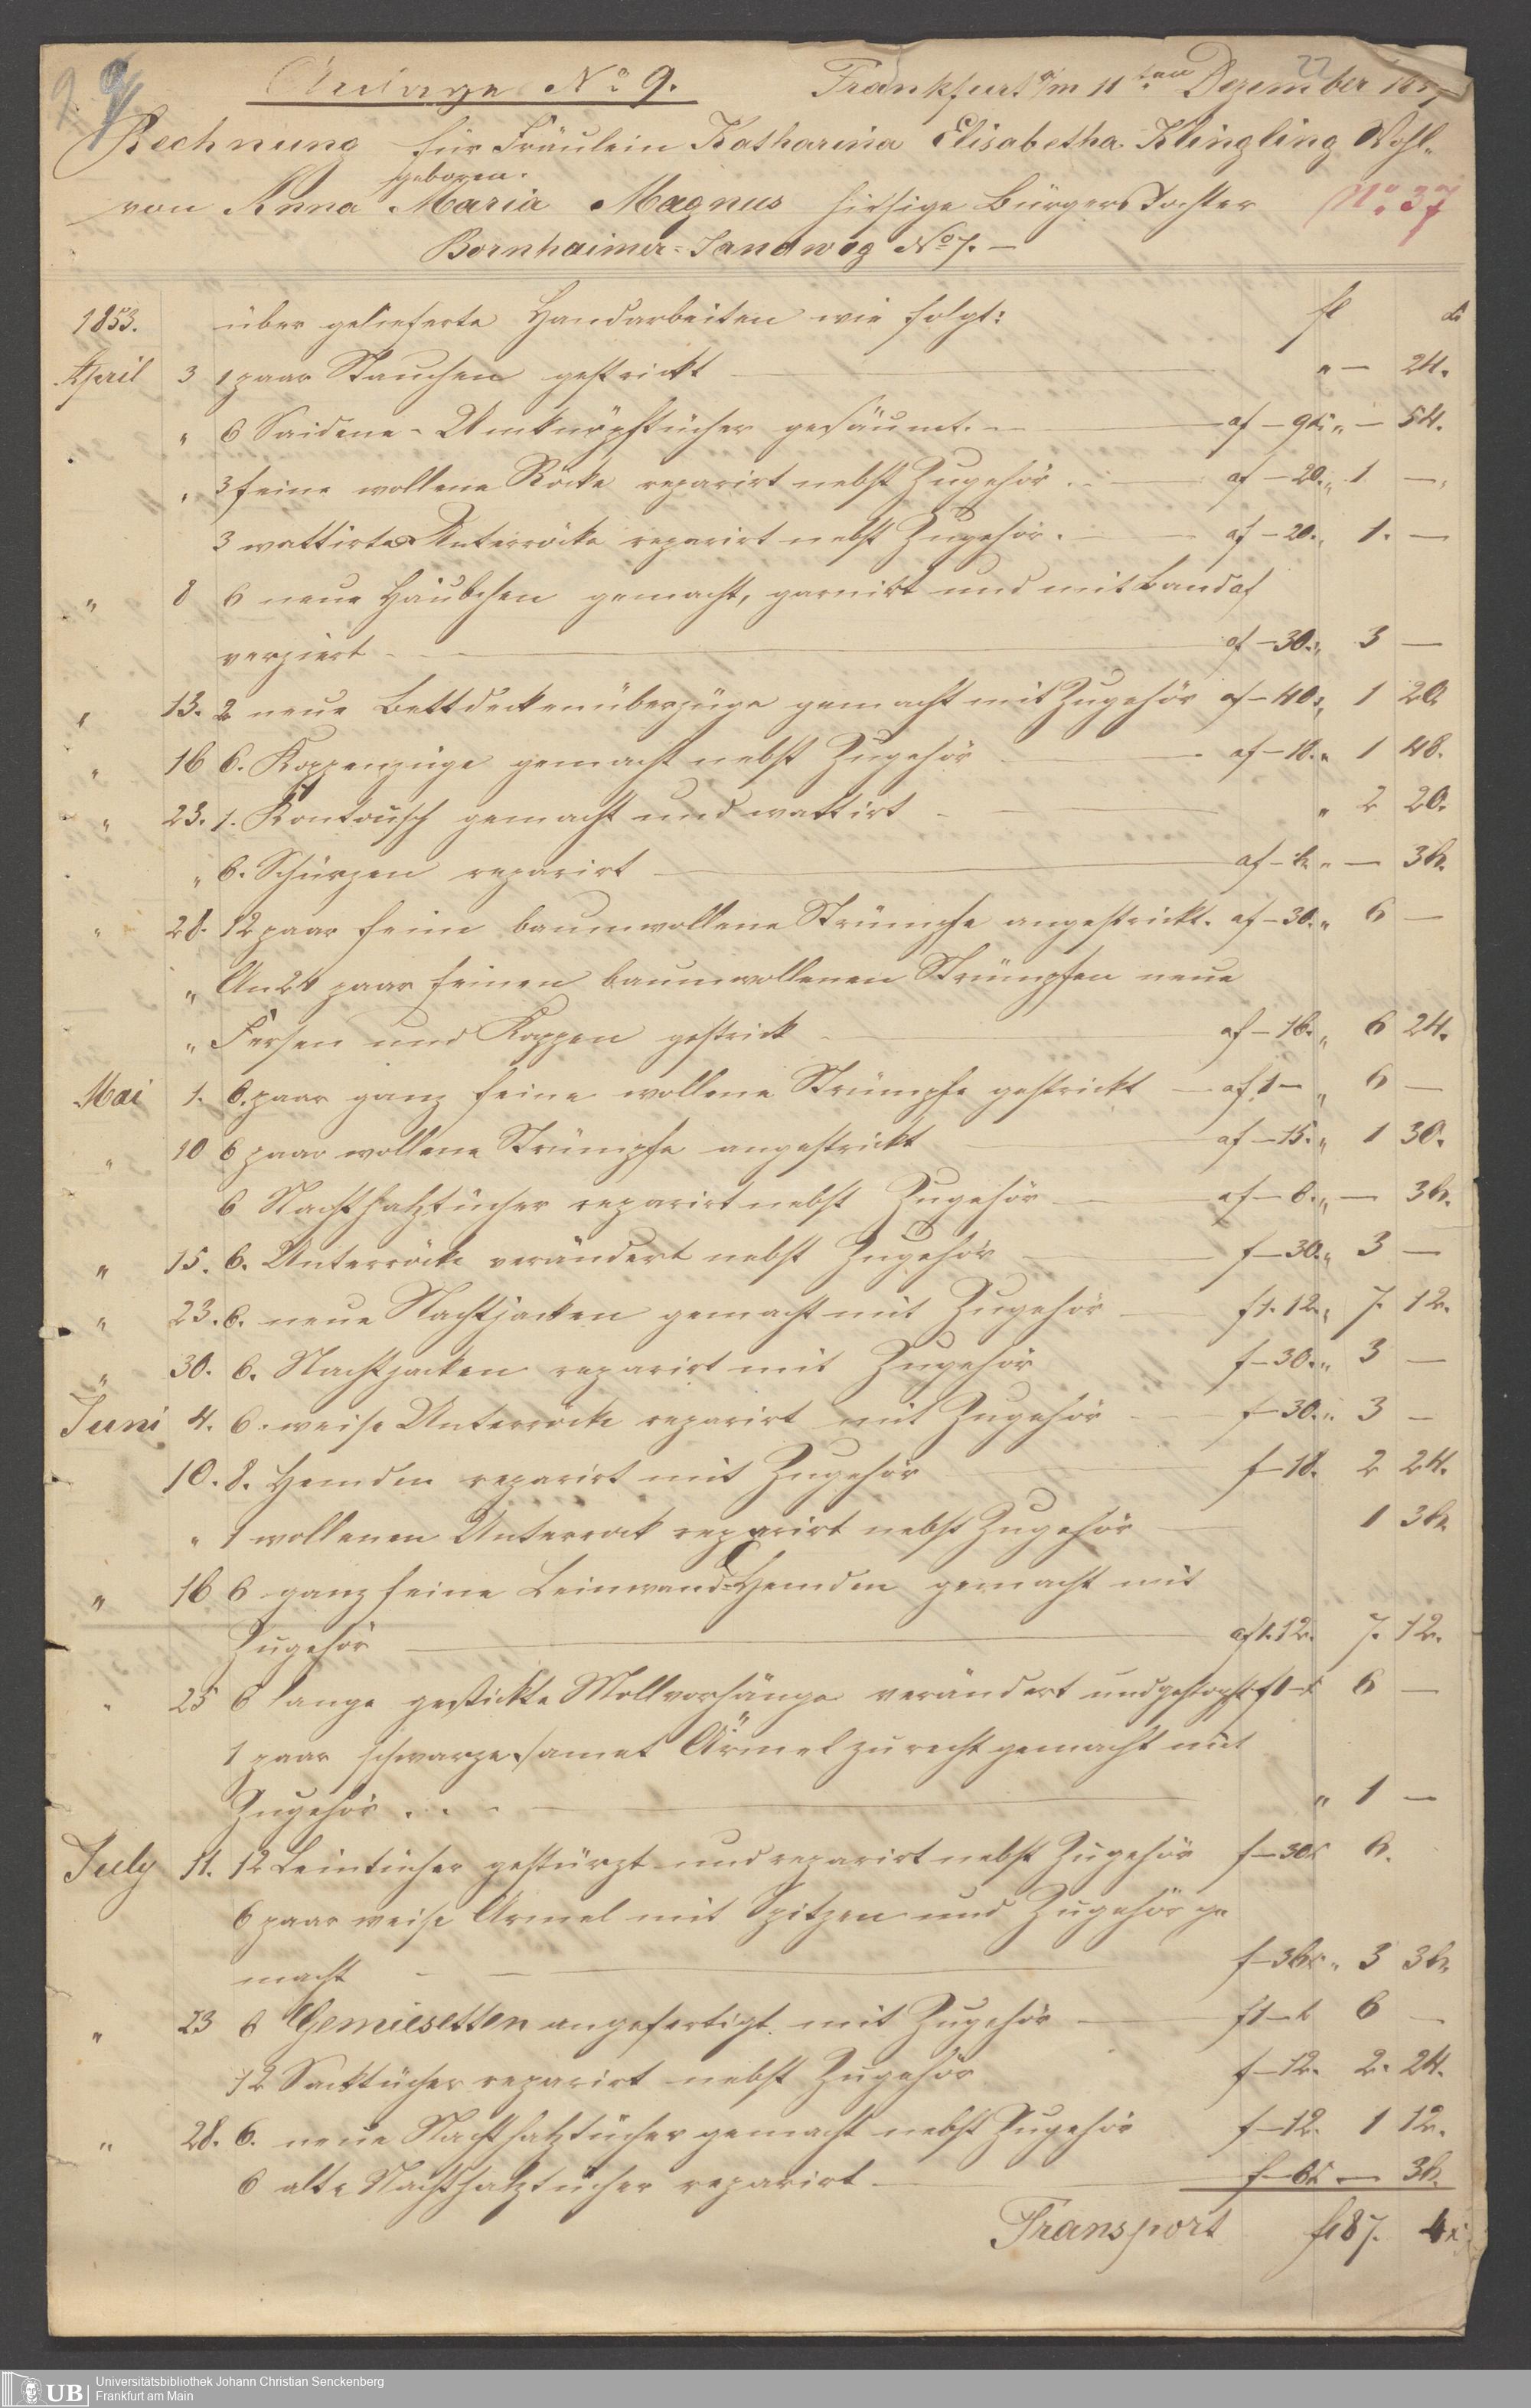 Anlage No 9. Frankfurt a/m 11ten Dezember 22
9
Rechnung für Fräulein Katharina Elisabetha Klingling Wohl-
geboren.
von Anna Maria Magnus hiesige Bürgerstochter No. 37
Bornhaimer-Sandweg No 7. —
1853. über gelieferte Handarbeiten wie folgt: fl x
April 3 1 paar Stauchen gestrickt " — 24.
" 6 Saidene-Umknüpftücher gesäumt. — af — 9 x " — 54.
" 3 feine wollene Röcke reparirt nebst Zugehör af — 20. " 1 —
3 wattirte Unterröcke reparirt nebst Zugehör. af — 20. " 1. —
" 8 6 neue Häubchen gemacht, garnirt und mit Band af
verziert af — 30. " 3 —
" 13. 2 neue Bettdeckenüberzüge gemacht mit Zugehör af — 40 " 1 20
" 16 6. Koppenzüge gemacht nebst Zugehör af — 18. " 1 48.
" 23. 1. Kontousch gemacht und wattirt " 2 20.
" 6. Schürzen reparirt af — 6 " — 36.
" 28. 12 paar feine baumwollene Strümpfe angestrickt. af — 30. " 6 —
" An 24 paar feinen baumwollenen Strümpfen neue
" Fersen und Kappen gestrick af — 16. " 6 24.
Mai 1. 6. paar ganz feine wollene Strümpfe gestrickt — af 1 — " 6 —
" 10 6 paar wollene Strümpfe angestrickt af — 15. " 1 30.
6 Nachthalstücher reparirt nebst Zugehör af — 6. " — 36.
" 15. 6. Unterröcke verändert nebst Zugehör f — 30. " 3 —
" 23. 6. neue Nachtjacken gemacht mit Zugehör f 1. 12. " 7. 12.
" 30. 6. Nachtjacken reparirt mit Zugehör f — 30. " 3 —
Juni 4. 6. weise Unterröcke reparirt mit Zugehör f — 30. " 3 —
10. 8. Hemden reparirt mit Zugehör f — 18. 2 24.
" 1 wollenen Unterrock reparirt nebst Zugehör 1 36
" 16 6 ganz feine Leinwand-Hemden gemacht mit
Zugehör af 1. 12. 7. 12.
" 25 6 lange gestickte Mollvorhänge verändert und gestopft f 1 — x 6 —
1 paar schwarze samet Ärmel zurecht gemacht mit
Zugehör . . - " 1 —
July 11. 12 Leintücher gestürzt und reparirt nebst Zugehör f — 30 x 6.
6 paar weise Ärmel mit Spitzen und Zugehör ge
macht f — 36 x " 3 36.
" 23 6 Gemiesetten angefertigt mit Zugehör f 1 — x 6 —
12 Sacktücher reparirt nebst Zugehör f — 12. 2. 24.
" 28. 6. neue Nachthalstücher gemacht nebst Zugehör f — 12. 1 12.
6 alte Nachthalstücher reparirt f — 6 x — 36.
Transport fl 87. 4 x
UB Universitätsbibliothek Johann Christian Senckenberg
Frankfurt am Main